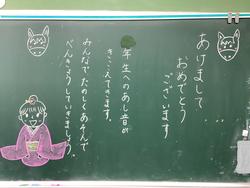 あけまして
おめでとう
ございます
年生へのあし音が
きこえてきます。
みんなでたのしくあそんで
べんきょうしていきましょう